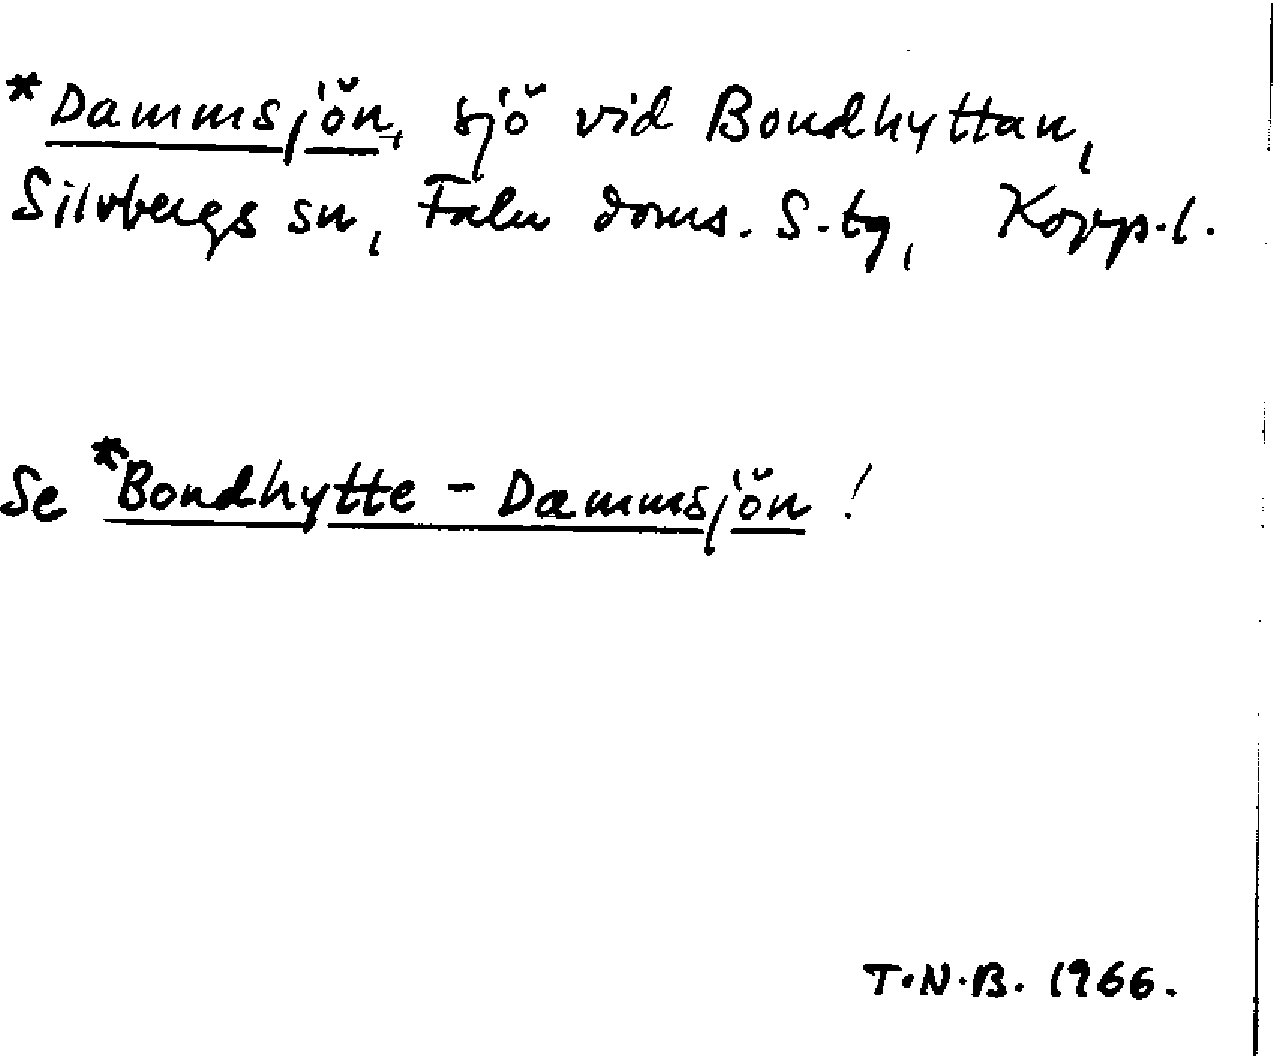 *Dammsjön, sjö vid Bondhyttan,
Silvbergs sn, Falu doms. S. tg, Kopp.l.
Se *Bondhytte - Dammsjön!
T.N.B. 1966.